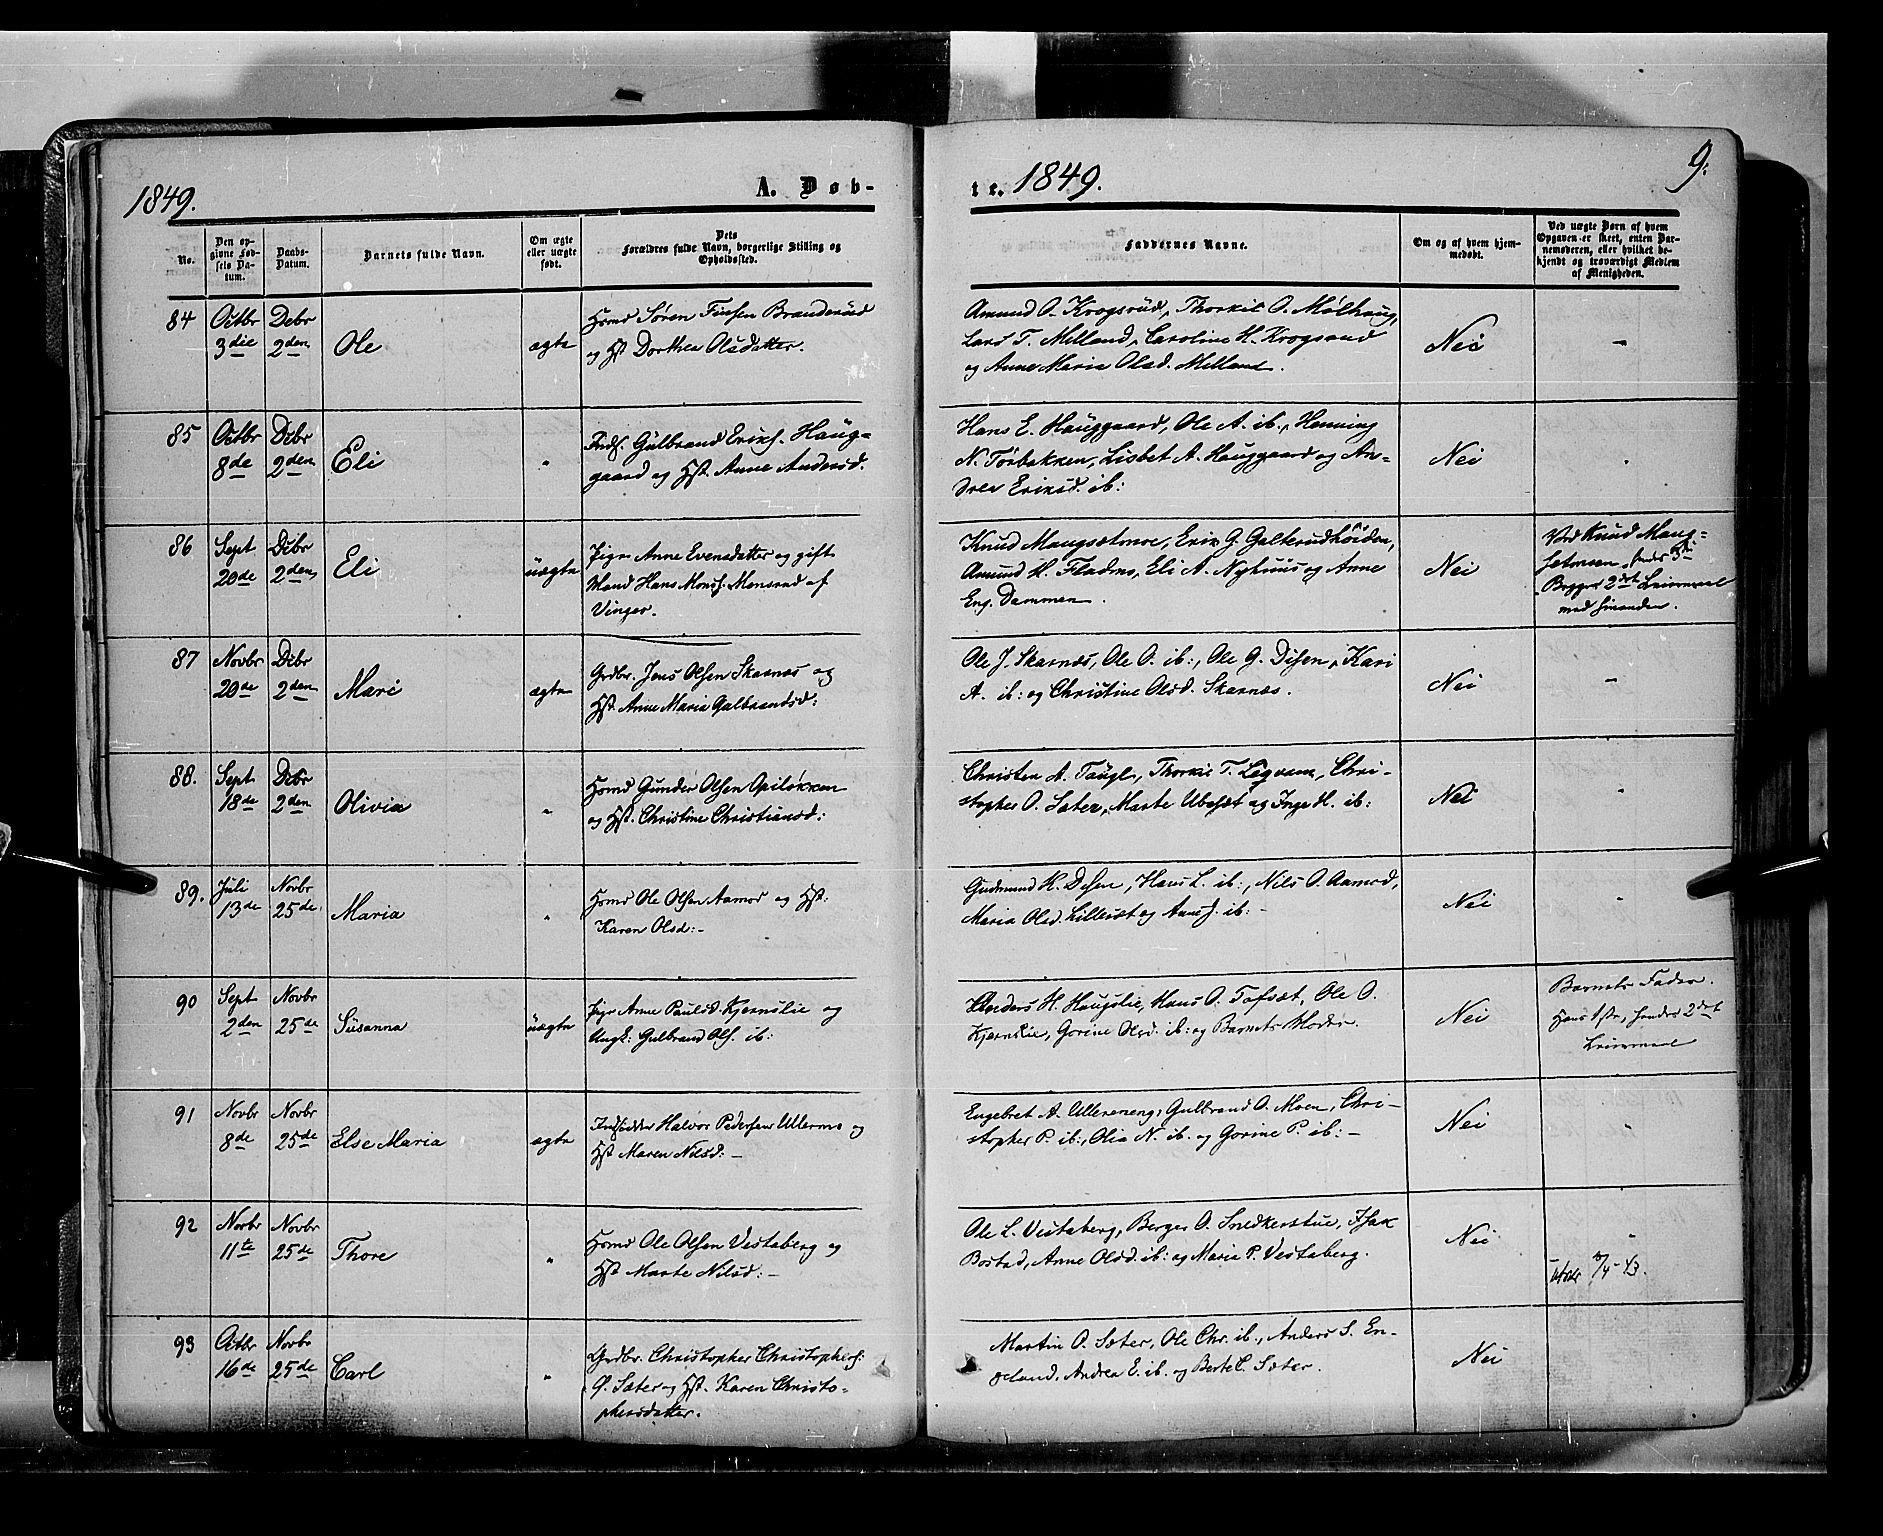 1849.
A. Døb-
te. 1849.
9.
No.
Den opgivne Fødsels Datum.
Daabs-Datum.
Barnets fulde Navn.
Om ægte eller uægte født.
Dets Forældres fulde Navn, borgerlige Stilling og Opholdssted.
Faddernes Navne.
Om og af hvem hjemmedøbt.
Ved uægte Børn af hvem Opgaven er skeet, enten Barnemoderen, eller hvilket bekjendt og troværdigt Medlem af Menigheden.
84 Octbr 3die Debr 2den Ole ægte
Hsmd Søren Finsen Branderud
og Hst Dorthea Olsdatter.
Amund O. Krogsrud, Thorkil O. Mølhaug,
Lars T. Milland, Caroline H. Krogsrud
og Anne Maria Olsd. Milland.
Nei -
85 Octbr 8de Debr 2den Eli "
Inds. Gulbrand Eriks. Haug-
gaard og Hst. Anne Andersd.
Hans E. Hauggaard, Ole A. ib., Henning
N. Torbakken, Lisbet A. Hauggaard og An-
drea Eriksd. ib:
Nei "
86 Sept 20de Debr 2den Eli uægte
Pige Anne Evensdatter og gift
Mand Hans Mons. Monsrud af
Vinger.
Knud Maugsetmoe, Erik G. Galterudhøiden,
Amund H. Fladmo, Eli A. Nyhuus og Anne
Eng. Dammen.
Nei
Ved Knud Maug-
setmoen,
Begges 2det Leiermaal
med hinanden.
87 Novbr 20de Debr 2den Mari ægte
Grdbr. Jens Olsen Skarnæs og
Hst. Anne Maria Gulbrandsd:
Ole J. Skarnæs, Ole O. ib:, Ole G. Disen, Kari
A. ib: og Christine Olsd. Skarnæs.
Nei -
88. Sept 18de Debr 2den Olivia "
Hsmd Gunder Olsen Opiløkken
og Hst. Christine Christiansd:
Christen A. Taugl, Thorkil T. Ligvam, Chri-
stopher O. Sæter, Marte Ubesæt og Inge H. ib:
Nei "
89. Juli 13de Novbr 25de Maria "
Hsmd Ole Olsen Aamod og Hst:
Karen Olsd:-
Gudmund H. Disen, Hans L. ib:, Nils O. Aamod,
Maria Olsd. Lilleset og Anne J. ib:-
Nei "
90 Sept 2den Novbr 25de Susanna uægte
Pige Anne Paulsd Kjernslie og
Ungk: Gulbrand Ols. ib:
Anders H. Haugslie, Hans O. Tofsæt, Ole O.
Kjernslie, Gorine Olsd. ib: og Barnets Moder.
Nei
Barnets Fader.
Hans 1ste, hendes 2det
Leiermaal
91 Novbr 8de Novbr 25de Else Maria ægte
Indsidder Halvor Pedersen Ullermo og
Hst Maren Nilsd:-
Engebret A. Ullereneng, Gulbrand O. Moen, Chri-
stopher P. ib:, Olia N. ib. og Gorine P. ib:-
Nei "
92 Novbr 11te Novbr 25de Thore "
Hsmd Ole Olsen Vestaberg og
Hst Marte Nilsd:-
Ole L. Vestaberg, Berger O. Snedkerstue, Isak
Bostad, Anne Olsd. ib: og Maria P. Vestaberg.
Nei "
93 Octbr 16de Novbr 25de Carl "
Grdbr. Christopher Christophers:
Ø. Sæter og Hst. Karen Christo-
phersdatter.
Martin O. Sæter, Ole Chr. ib., Anders S. En-
geland, Andrea E. ib. og Berte C. Sæter.
Nei